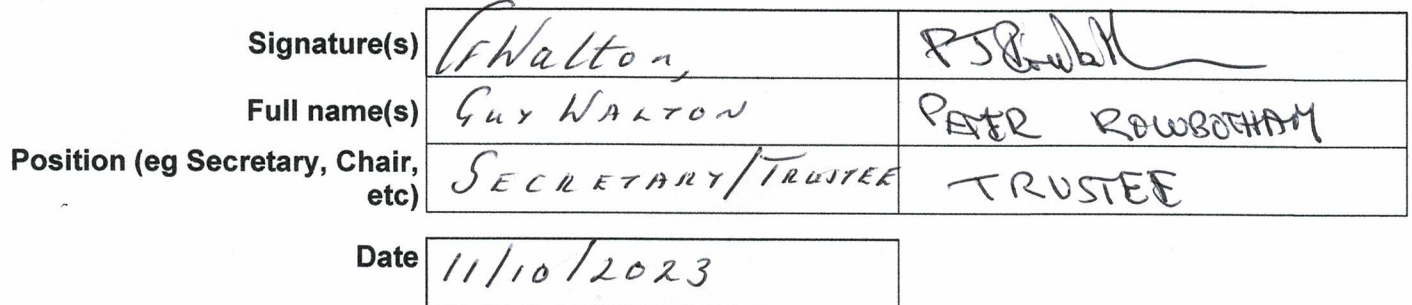 Signature(s) GWalton, PJRowboth
Full name(s) Guy WALTON PETER ROWBOTHAM
Position (eg Secretary, Chair,
etc) SECRETARY/TRUSTEE TRUSTEE
Date 11/10/2023